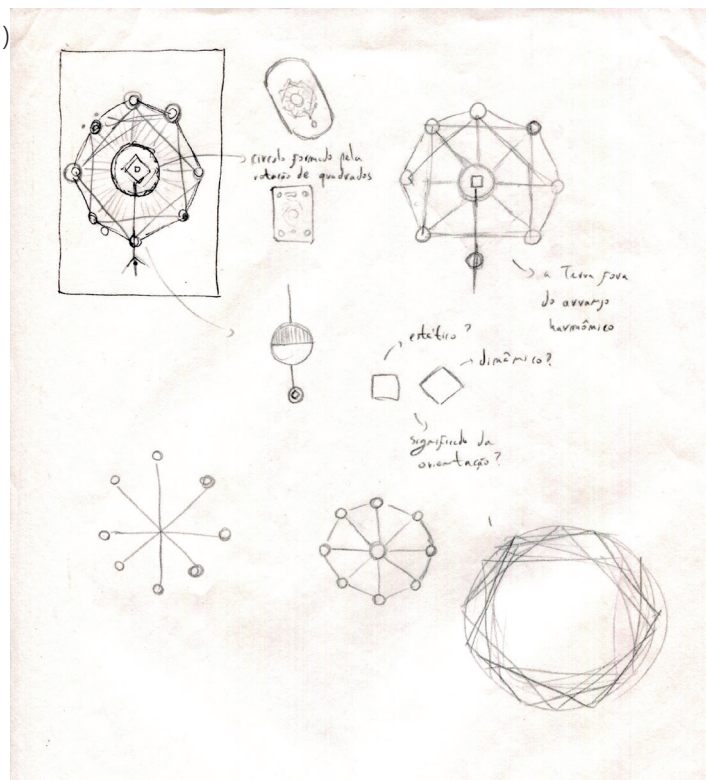 )
círculo formado pela
rotação de quadrados
a Terra fora
do arranjo
harmônico
estático?
dinâmico?
significado da
orientação?